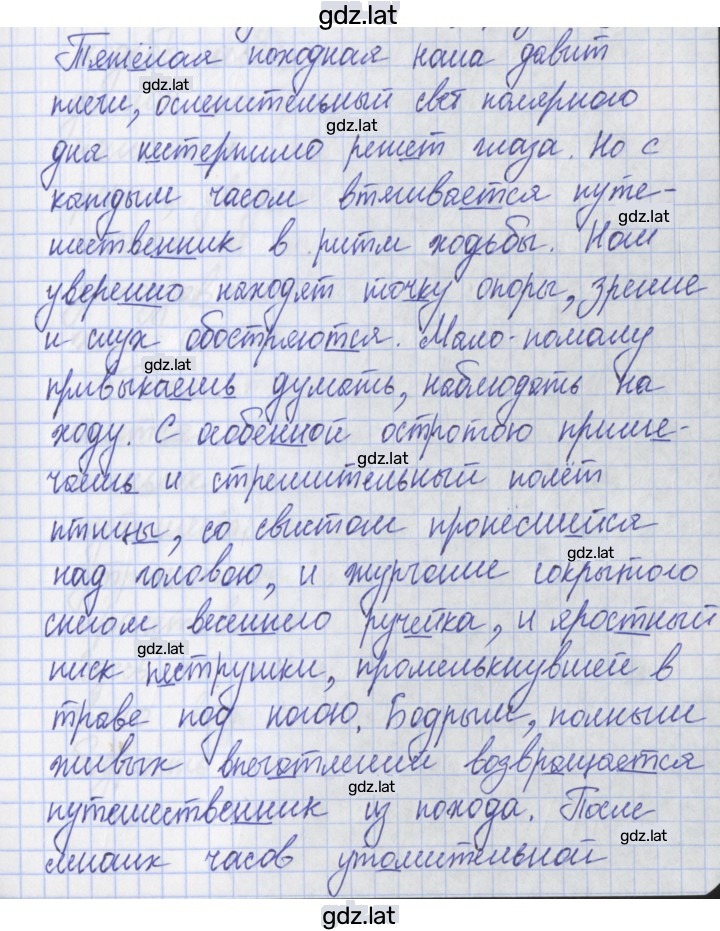 gdz.lat
Тяжёлая походная ноша давит
gdz.lat
плечи, ослепительный свет полярного
gdz.lat
дня нестерпимо режет глаза. Но с
каждым часом втягивается путе-
gdz.lat
шественник в ритм ходьбы. Ноги
уверенно находят точку опоры, зрение
и слух обостряются. Мало-помалу
gdz.lat
привыкаешь думать, наблюдать на
ходу. С особенной остротою приме-
чаешь и стремительный полёт
птицы, со свистом пронёсшейся
gdz.lat
над головою, и журчание сокрытого
снегом весеннего ручейка, и яростный
gdz.lat
писк пеструшки, промелькнувшей в
траве под ногою. Бодрым, полным
живых впечатлений возвращается
gdz.lat
путешественник из похода. После
gdz.lat
многих часов утомительной
gdz.lat